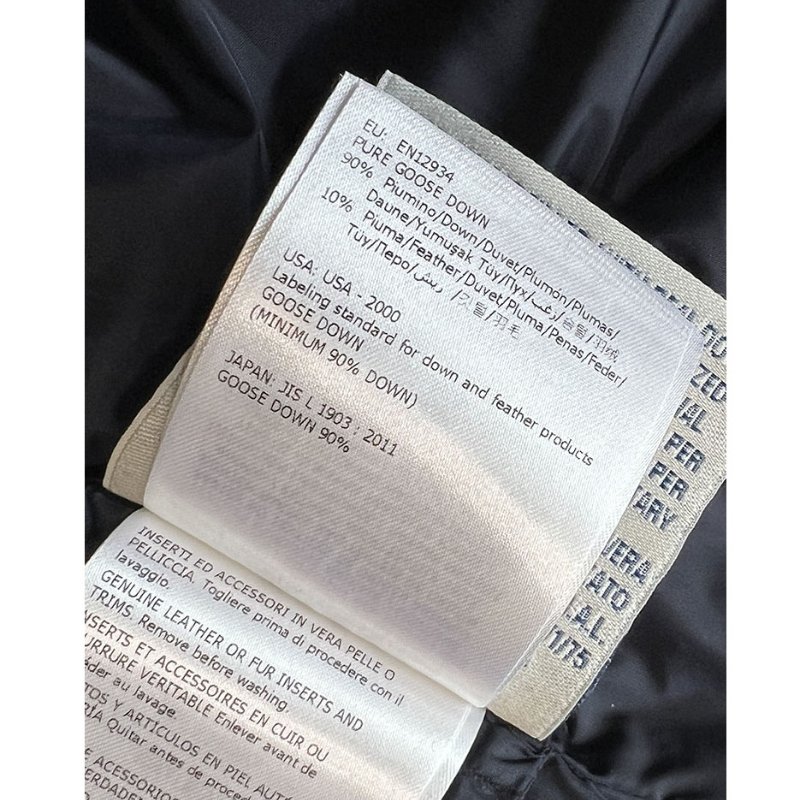 EU: EN12934
PURE GOOSE DOWN
90% Piumino/Down/Duvet/Plumon/Plumas/
Daune/Yumuşak Tüy/Пух/زغب/솜털/羽绒
10% Piuma/Feather/Duvet/Pluma/Penas/Feder/
Tüy/Перо/ريش/깃털/羽毛
USA: USA - 2000
Labeling standard for down and feather products
GOOSE DOWN
(MINIMUM 90% DOWN)
JAPAN: JIS L 1903 : 2011
GOOSE DOWN 90%
INSERTI ED ACCESSORI IN VERA PELLE O
PELLICCIA. Togliere prima di procedere con il
lavaggio.
GENUINE LEATHER OR FUR INSERTS AND
TRIMS. Remove before washing.
NSERTS ET ACCESSOIRES EN CUIR OU
URRURE VERITABLE Enlever avant de
der au lavage
TOS Y ARTÍCULOS EN PIEL AUTÉ
RÍA Quitar antes de proced
E ACCESSÓRIOS
ERDADE
ZED
PER
PER
ARY
VERA
ATO
.A.L.
1/75